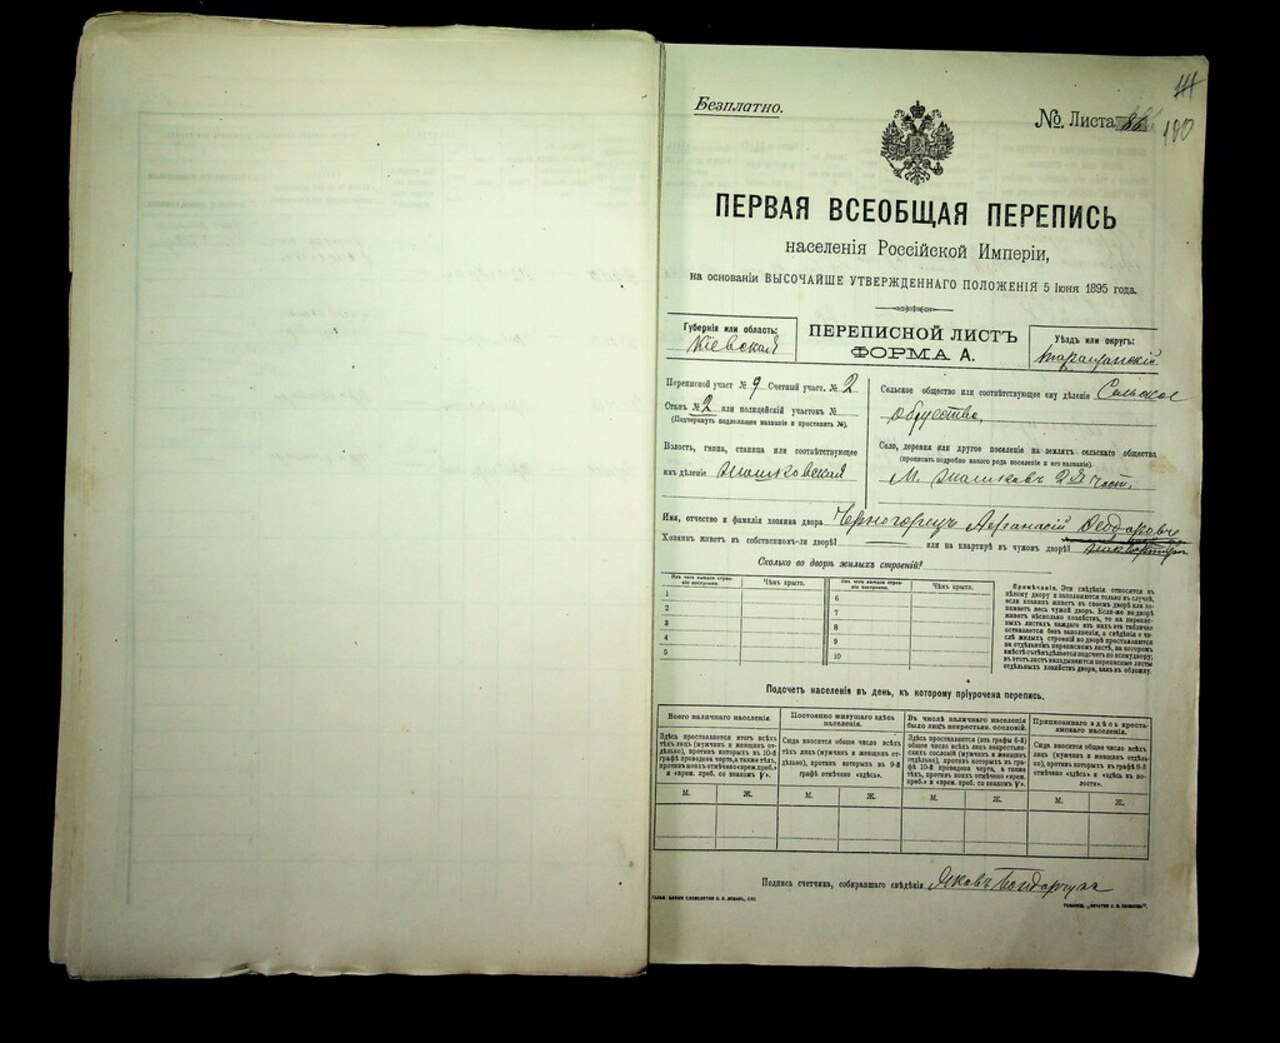 Безплатно.
№ Листа
100
ПЕРВАЯ ВСЕОБЩАЯ ПЕРЕПИСЬ
населенія Россійской Имперіи,
на основаніи ВЫСОЧАЙШЕ УТВЕРЖДЕННАГО ПОЛОЖЕНІЯ 5 Іюня 1895 года.
Губернія или область:
Кіевская
ПЕРЕПИСНОЙ ЛИСТЪ
ФОРМА А.
Уѣздъ или округъ:
Таращанскій
Переписной участ № 9 Счетный участ. № 2
Станъ № 2 или полицейскій участокъ №
(Подчеркнуть подлежащее названіе и проставить №).
Волость, гмина, станица или соотвѣтствующее
ихъ дѣленіе
Сельское общество или соотвѣтствующее ему дѣленіе Сельское
Общество,
Село, деревня или другое поселеніе на земляхъ сельскаго общества
(прописать подробно какого рода поселеніе и его названіе).
М. 2я част.
Имя, отчество и фамилія хозяина двора Черногорецъ Афанасій Ѳеодоровъ
Хозяинъ живетъ въ собственномъ-ли дворѣ? или на квартирѣ въ чужомъ дворѣ?
Сколько во дворѣ жилыхъ строеній?
Изъ чего каждое строеніе построено.
Чѣмъ крыто.
Изъ чего каждое строеніе построено.
Чѣмъ крыто.
1
2
3
4
5
6
7
8
9
10
Примѣчаніе. Эти свѣдѣнія относятся къ
цѣлому двору и заполняются только въ случаѣ,
если хозяинъ живетъ въ своемъ дворѣ или занимаетъ
весь чужой дворъ. Если-же во дворѣ
Подсчетъ населенія въ день, къ которому пріурочена перепись.
Всего наличнаго населенія.
Здѣсь проставляется итогъ всѣхъ
тѣхъ лицъ (мужчинъ и женщинъ отдѣльно),
противъ которыхъ въ 10-й
графѣ проведена черта, а также тѣхъ,
противъ коихъ отмѣчено «врем. преб.»
и «врем. преб. со знакомъ V».
Постоянно живущаго здѣсь
населенія.
Сюда вносится общее число всѣхъ
тѣхъ лицъ (мужчинъ и женщинъ отдѣльно),
противъ которыхъ въ 9-й
графѣ отмѣчено «здѣсь».
Въ числѣ наличнаго населенія
было лицъ некрестьян. сословій.
Здѣсь проставляется (изъ графы 6-й)
общее число всѣхъ лицъ некрестьянскихъ
сословій (мужчинъ и женщинъ
отдѣльно), противъ которыхъ въ графѣ
10-й проведена черта, а также
тѣхъ, противъ коихъ отмѣчено «врем.
преб.» и «врем. преб. со знакомъ V».
Приписаннаго здѣсь крестьянскаго
населенія.
Сюда вносится общее число всѣхъ
лицъ (мужчинъ и женщинъ отдѣльно),
противъ которыхъ въ графѣ 8-й
отмѣчено «здѣсь» и «здѣсь въ волости».
М. Ж. М. Ж. М. Ж. М. Ж.
Подпись счетчика, собиравшаго свѣдѣнія Яковъ Бондарчукъ